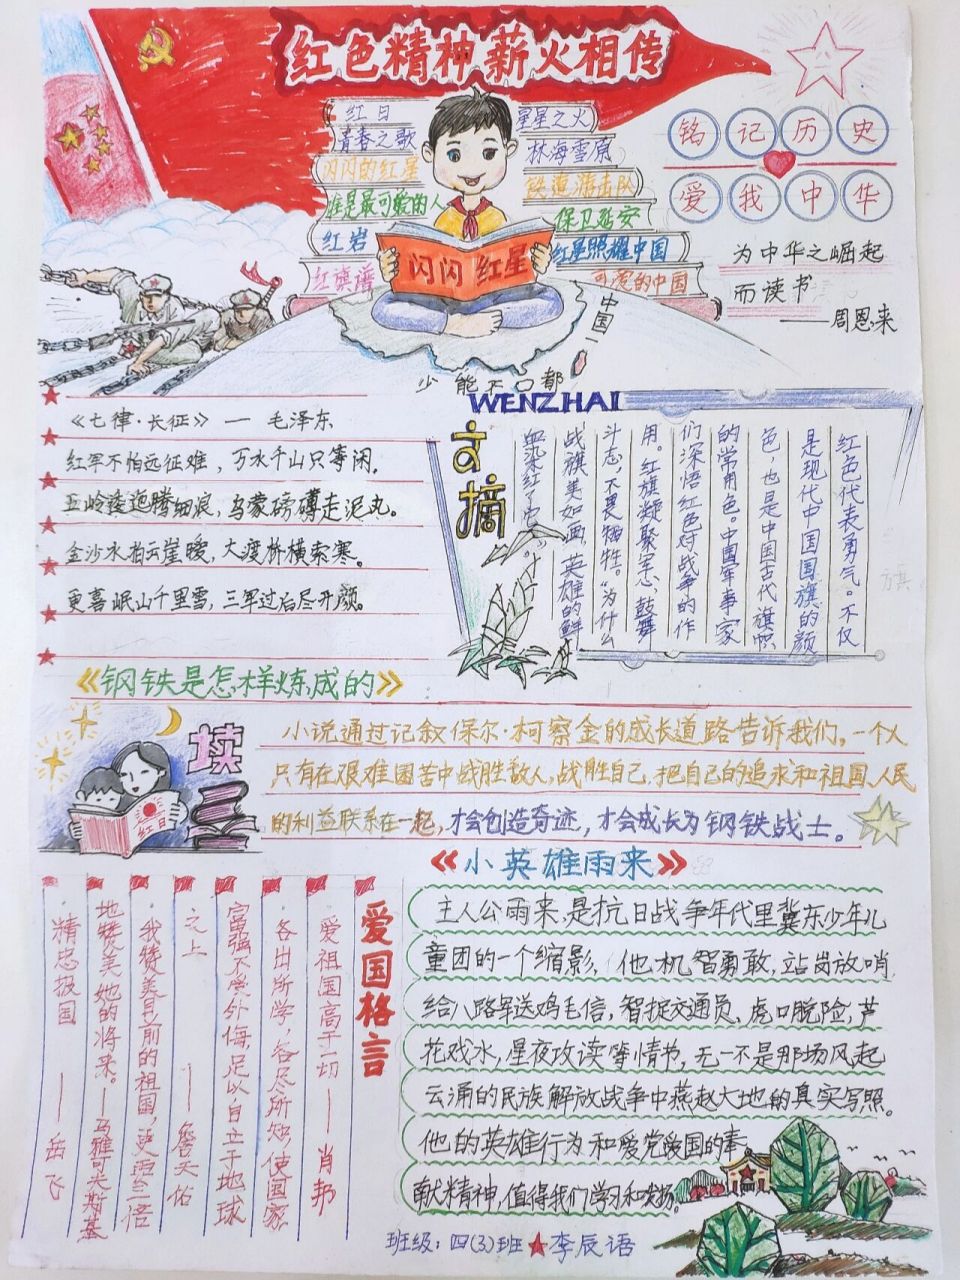 红色精神薪火相传
红日
青春之歌
闪闪的红星
谁是最可爱的人
红岩
红旗谱
星星之火
林海雪原
铁道游击队
保卫延安
红星照耀中国
可爱的中国
闪闪红星
中国一
少能不口都
铭记历史
爱我中华
为中华之崛起
而读书
——周恩来
《七律·长征》— 毛泽东
红军不怕远征难,万水千山只等闲。
五岭逶迤腾细浪,乌蒙磅礴走泥丸。
金沙水拍云崖暖,大渡桥横索寒。
更喜岷山千里雪,三军过后尽开颜。
WENZHAI
文摘
红色代表勇气。不仅
是现代中国国旗的颜
色,也是中国古代旗帜
的常用色。中国军事家
们深悟红色对战争的作
用。红旗凝聚军心、鼓舞
斗志,不畏牺牲。“为什么
战旗美如画,英雄的鲜
血染红了
旗
《钢铁是怎样炼成的》
读
红日
小说通过记叙保尔·柯察金的成长道路告诉我们,一个人
只有在艰难困苦中战胜敌人,战胜自己,把自己的追求和祖国、人民
的利益联系在一起,才会创造奇迹,才会成长为钢铁战士。
《小英雄雨来》
主人公雨来,是抗日战争年代里冀东少年儿
童团的一个缩影,他机智勇敢,站岗放哨,
给八路军送鸡毛信,智捉交通员、虎口脱险,芦
花戏水,星夜攻读等情节,无一不是那场风起
云涌的民族解放战争中燕赵大地的真实写照。
他的英雄行为和爱党爱国的奉
献精神,值得我们学习和发扬。
爱国格言
爱祖国高于一切——肖邦
各出所学,各尽所知,使国家
富强不受外侮,足以自立于地球
之上——詹天佑
我赞美目前的祖国,更要三倍
地赞美她的将来。——马雅可夫斯基
精忠报国——岳飞
班级:四(3)班★李辰语